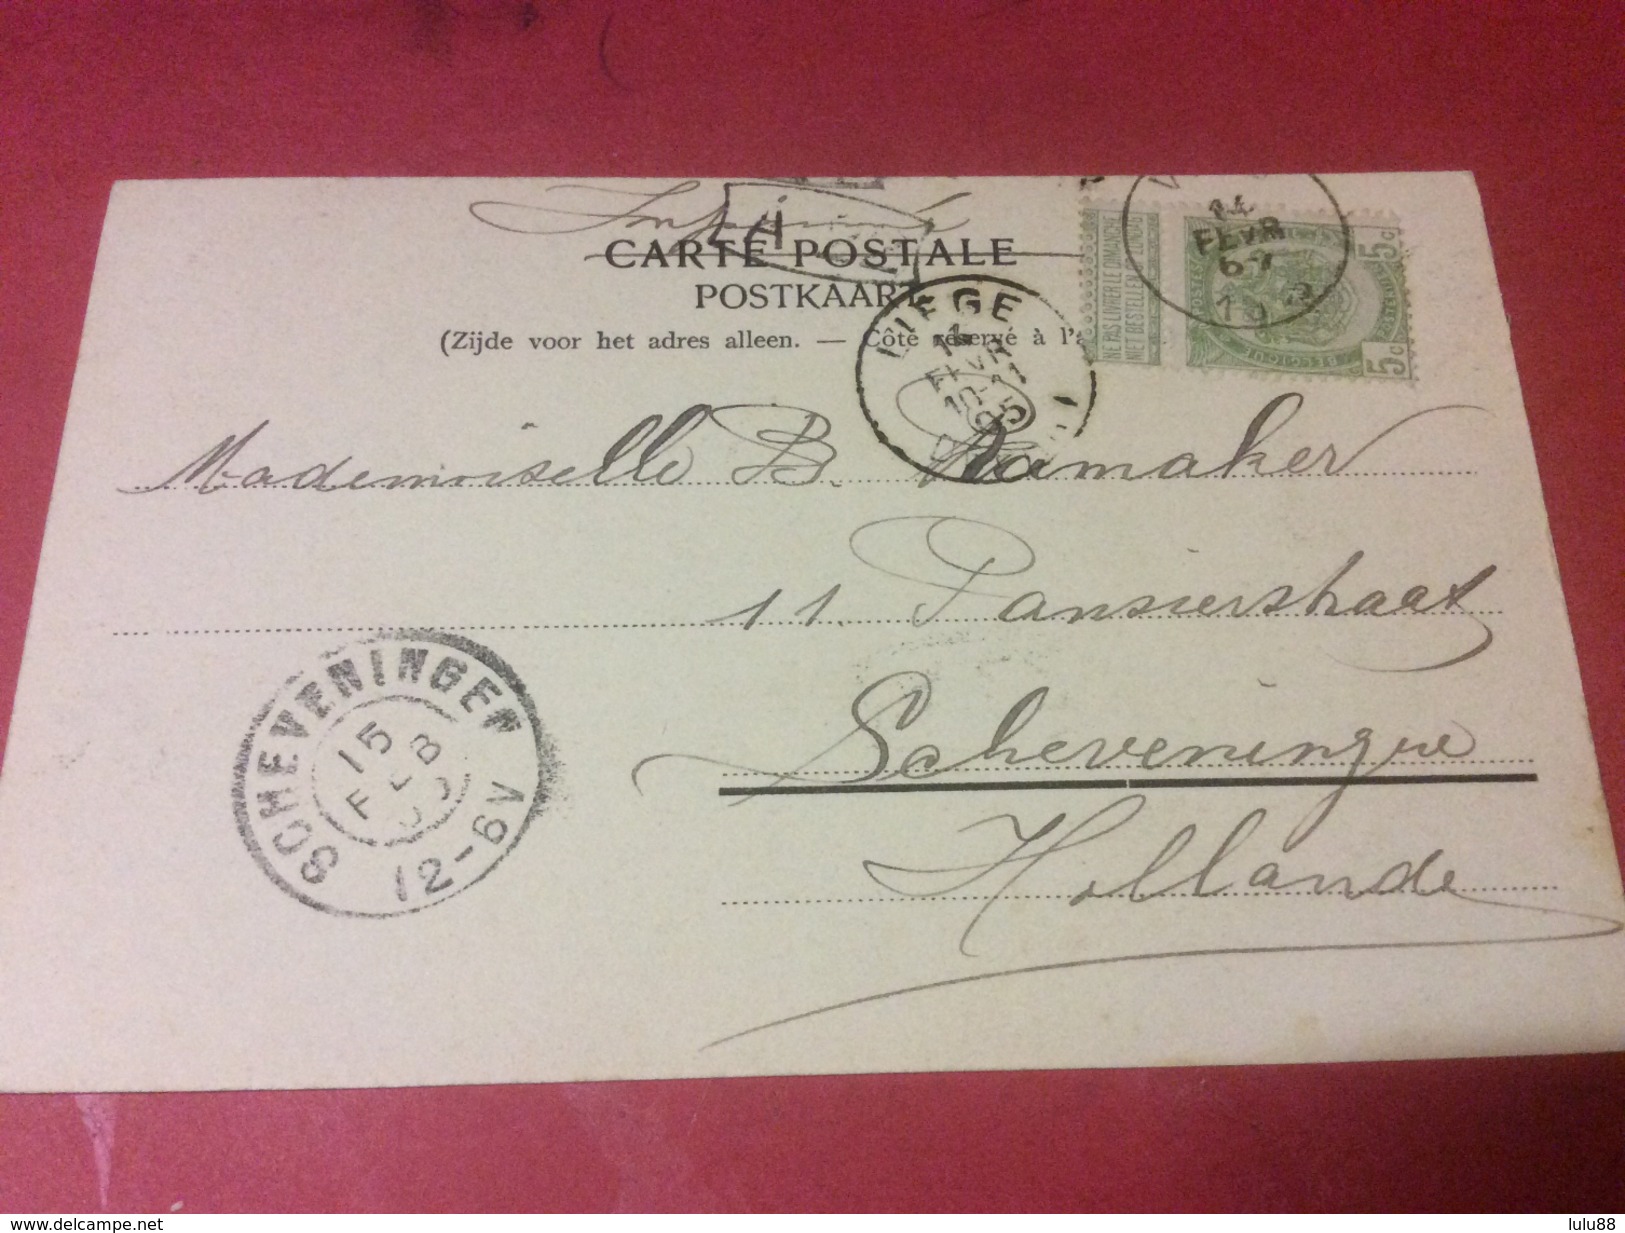 Imprimé
CARTE POSTALE
POSTKAART
(Zijde voor het adres alleen. — Côté réservé à l'a
NE PAS LIVRER LE DIMANCHE
NIET BESTELLEN OP ZONDAG
POSTES
BELGIQUE
5c
5c
14
FEVR
6-7
LIEGE
FEVR
Mademoiselle B. Ramaker
11. Pansierstraat
Scheveningue
Hollande
SCHEVENINGEN
15
FEB
12-6V
www.delcampe.net
lulu88